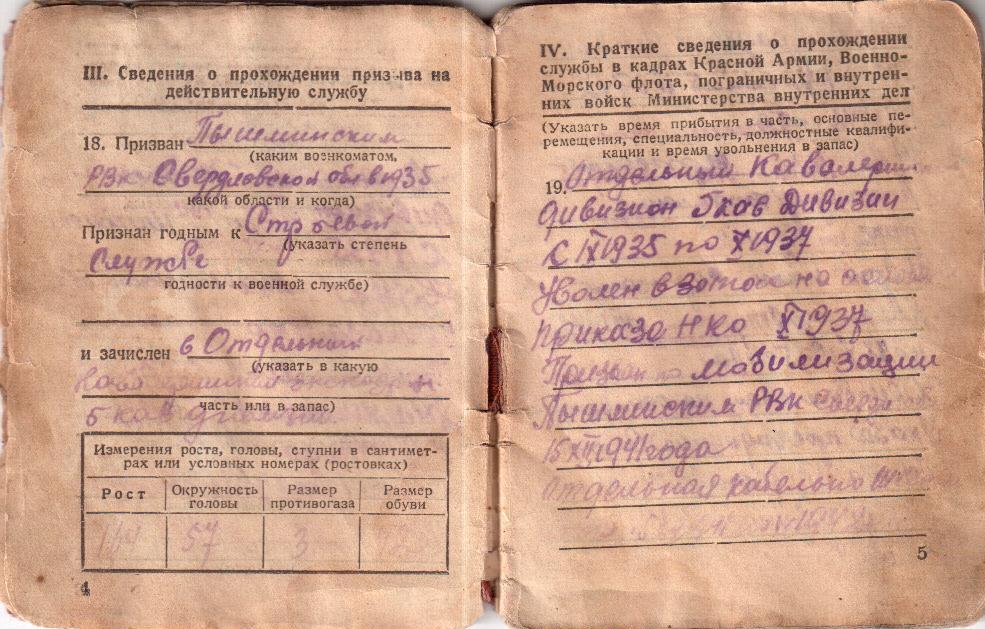 III. Сведения о прохождении призыва на
действительную службу
18. Призван Пышминским
(каким военкоматом,
РВК Свердловской обл в 1935
какой области и когда)
Признан годным к Строевой
(указать степень
Службе
годности к военной службе)
и зачислен в Отдельный
(указать в какую
часть или в запас)
5 кав дивизии
Измерения роста, головы, ступни в сантимет-
рах или условных номерах (ростовках)
Рост Окружность головы Размер противогаза Размер обуви
57 3
4
IV. Краткие сведения о прохождении
службы в кадрах Красной Армии, Военно-
Морского флота, пограничных и внутрен-
них войск Министерства внутренних дел
(Указать время прибытия в часть, основные пе-
ремещения, специальность, должностные квалифи-
кации и время увольнения в запас)
19. Отдельный Кавалерии
дивизион 5 кав Дивизии
С IX 1935 по X 1937
Уволен в запас на
приказа НКО XI 1937
Призван по мобилизации
Пышминским РВК
15 XII 1941 года
Отдельная кабельно
5